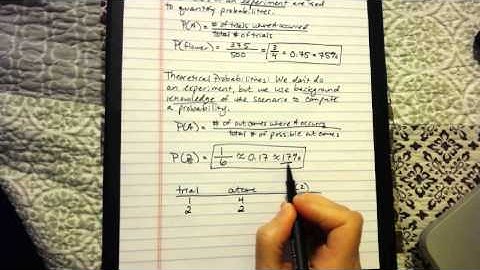 an experiment are used
to quantify probabilities.
P(A) = # of trials where A occurred
total # of trials
P(flower) = 375/500 = 3/4 = 0.75 = 75%
Theoretical Probabilities: We don't do
an experiment, but we use background
knowledge of the scenario to compute
a probability.
P(A) = # of outcomes where A occurs
total # of possible outcomes
P(2) = 1/6 ≈ 0.17 ≈ 17%
trial outcome (2)
1 4
2 2